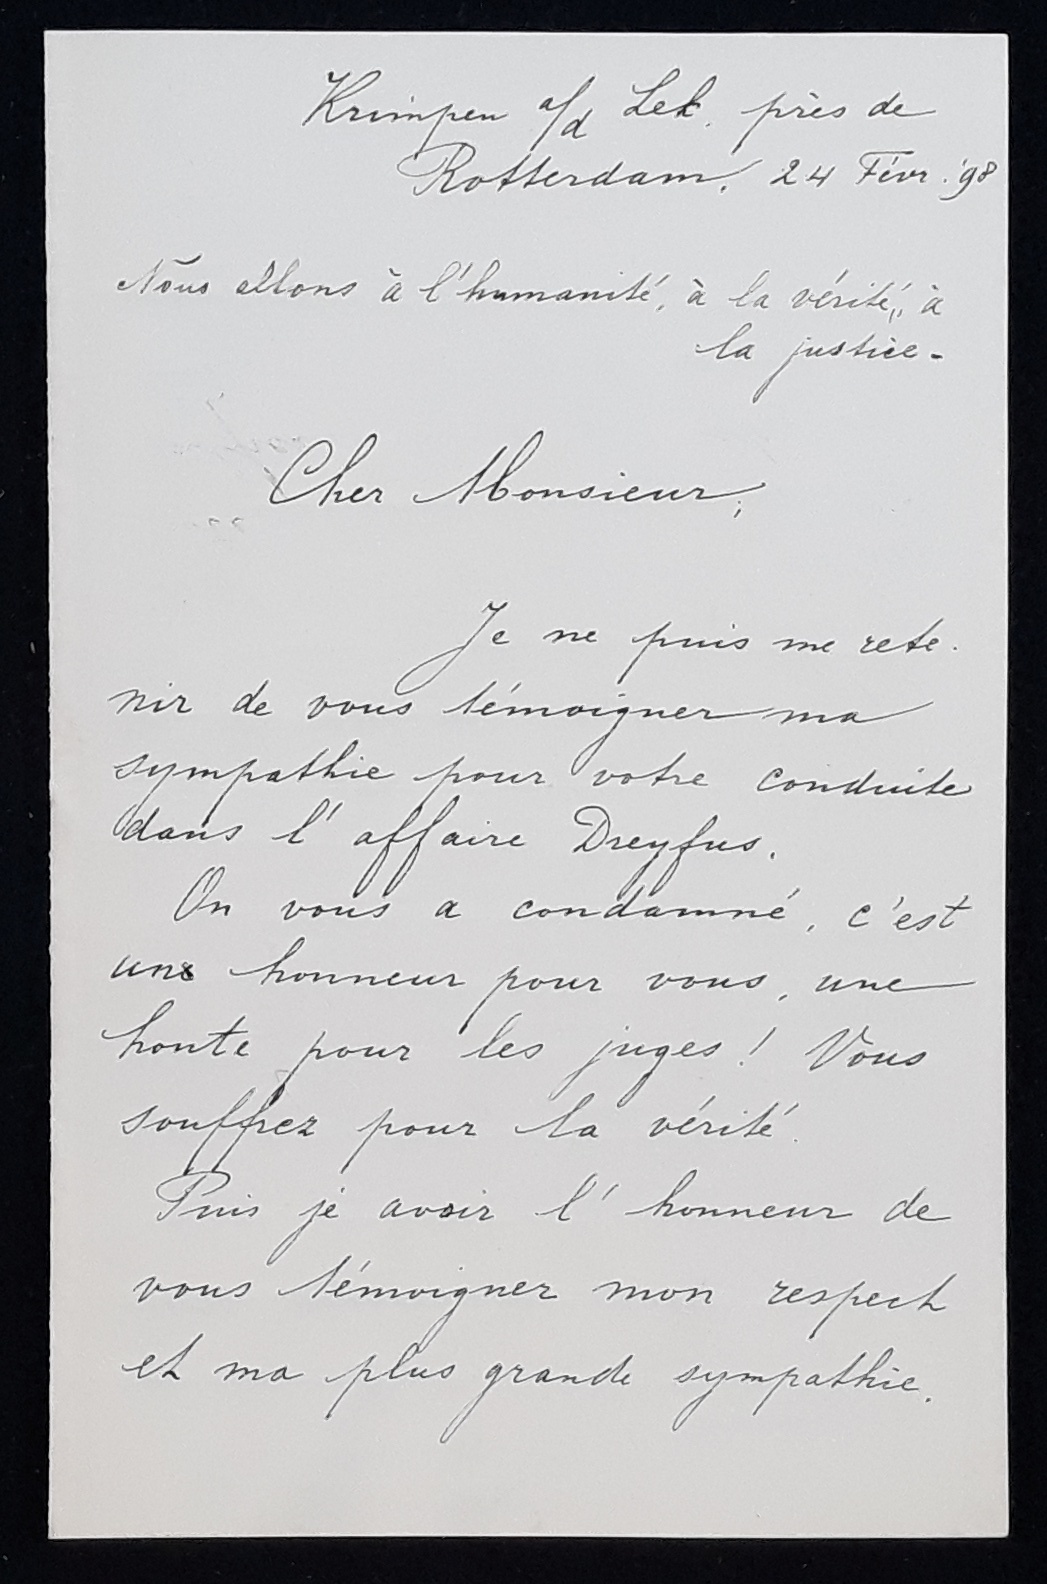 Krimpen a/d Lek. près de
Rotterdam, 24 Févr. '98
Nous allons à l'humanité, à la vérité, à
la justice -
Cher Monsieur,
Je ne puis me rete-
nir de vous témoigner ma
sympathie pour votre conduite
dans l'affaire Dreyfus.
On vous a condamné, c'est
un honneur pour vous, une
honte pour les juges! Vous
souffrez pour la vérité.
Puis je avoir l'honneur de
vous témoigner mon respect
et ma plus grande sympathie.